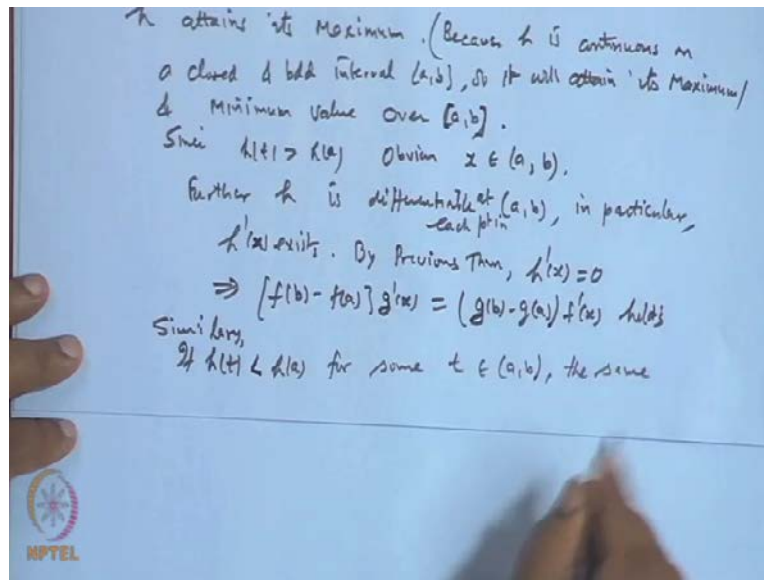 h attains its Maximum. (Because h is continuous on
a closed & bdd interval [a,b], so it will attain its Maximum/
& Minimum value over [a,b].
Since h(t) > h(a) Obvious x ∈ (a, b).
Further h is differentiable at (a,b), in particular,
each pt in
h'(x) exists. By Previous Thm, h'(x) = 0
⇒ [f(b) - f(a)] g'(x) = (g(b) - g(a)) f'(x) holds
Similarly,
If h(t) < h(a) for some t ∈ (a,b), the same
NPTEL